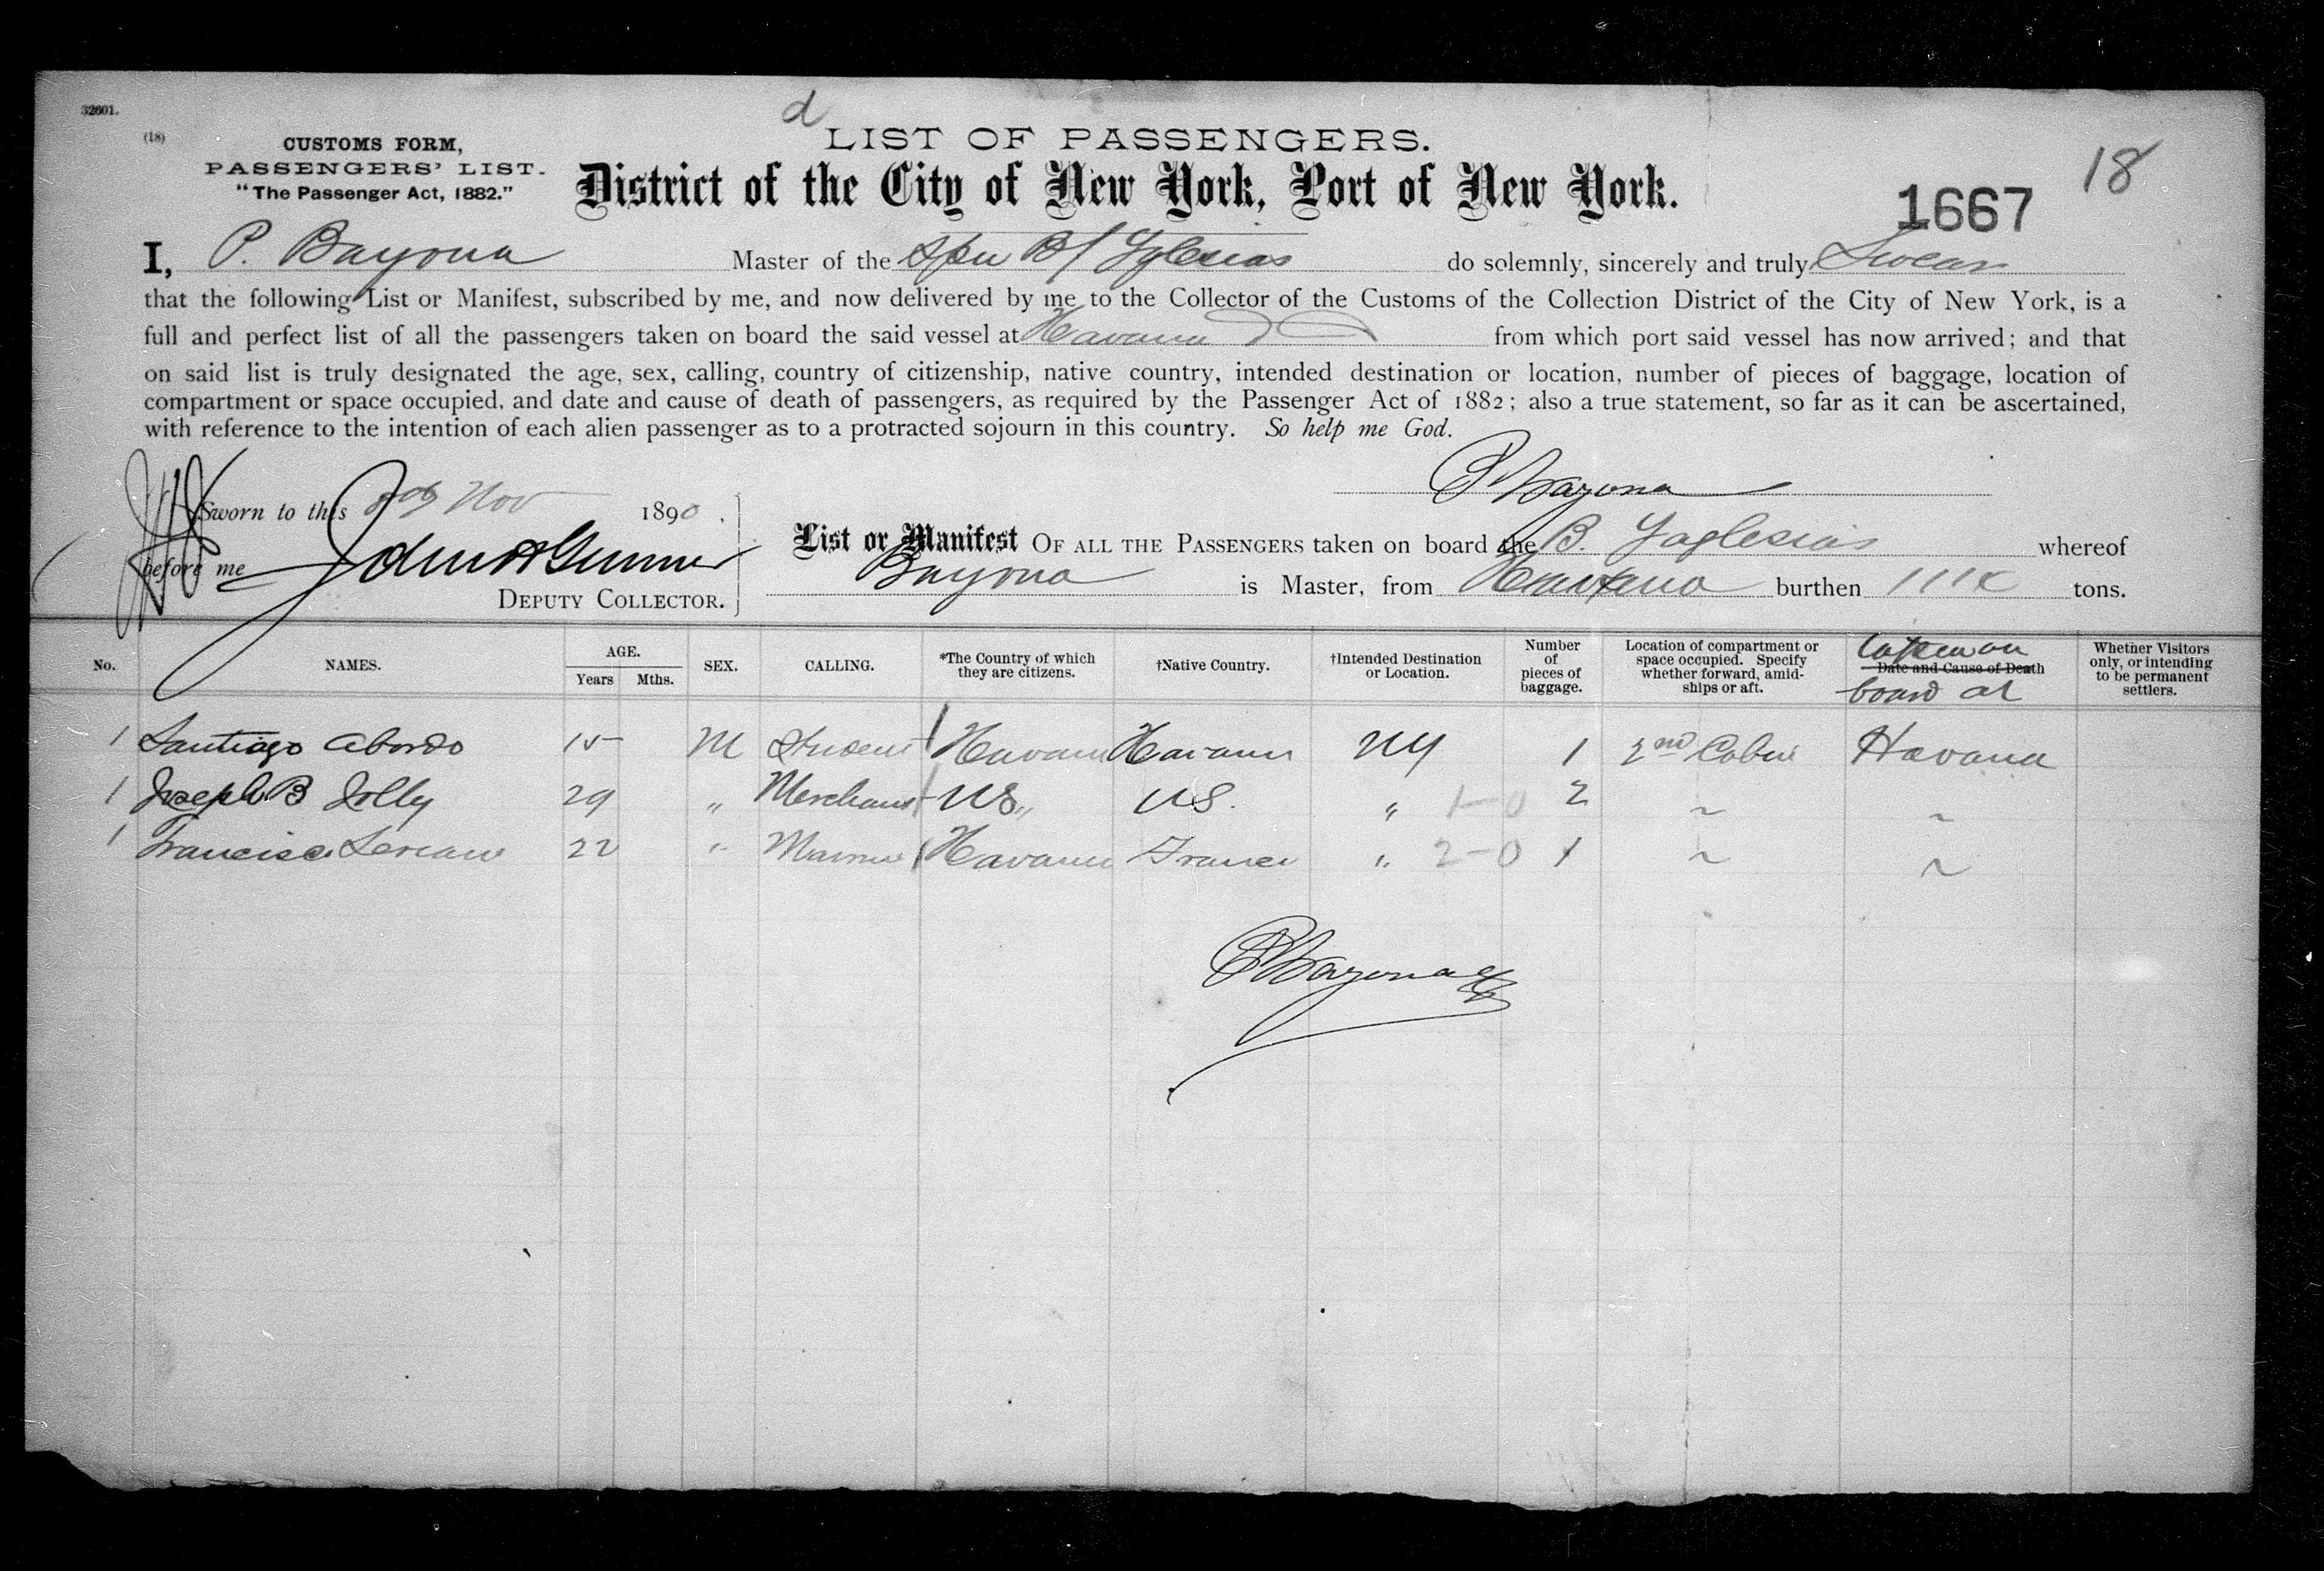 32601.
d
(18)
CUSTOMS FORM,
PASSENGERS' LIST.
"The Passenger Act, 1882."
LIST OF PASSENGERS.
District of the City of New York, Port of New York.
1667
18
I, P. Bayona Master of the Span B/ Yglesias do solemnly, sincerely and truly Swear
that the following List or Manifest, subscribed by me, and now delivered by me to the Collector of the Customs of the Collection District of the City of New York, is a
full and perfect list of all the passengers taken on board the said vessel at Havana from which port said vessel has now arrived; and that
on said list is truly designated the age, sex, calling, country of citizenship, native country, intended destination or location, number of pieces of baggage, location of
compartment or space occupied, and date and cause of death of passengers, as required by the Passenger Act of 1882; also a true statement, so far as it can be ascertained,
with reference to the intention of each alien passenger as to a protracted sojourn in this country. So help me God.
P Bayona
Sworn to this Nov 1890.
before me
DEPUTY COLLECTOR.
List or Manifest OF ALL THE PASSENGERS taken on board the B. Yaglesias whereof
Bayona is Master, from Havana burthen tons.
No. NAMES. AGE. Years Mths. SEX. CALLING. *The Country of which they are citizens. †Native Country. †Intended Destination or Location. Number of pieces of baggage. Location of compartment or space occupied. Specify whether forward, amidships or aft. Date and Cause of Death Taken on board at Whether Visitors only, or intending to be permanent settlers.
1 Santiago Abordo 15 M Student Havana Havana NY 1 2nd Cabin Havana
1 Joseph B Jolly 29 " Merchant US " US. " 1-0 2 ~ ~
1 Francisco 22 " Havana France " 2-0 1 ~ ~
P Bayona